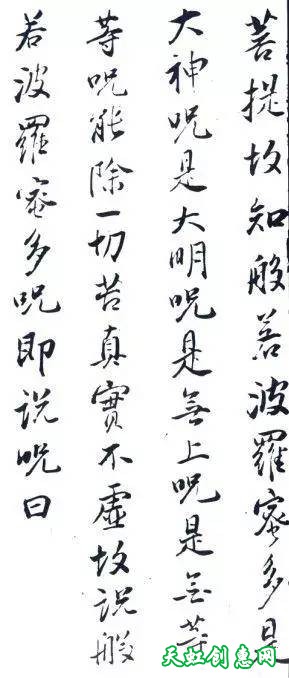 菩提故知般若波羅蜜多是
大神咒是大明咒是無上咒是無等
等咒能除一切苦真實不虛故說般
若波羅蜜多咒即說咒曰
天虹创惠网